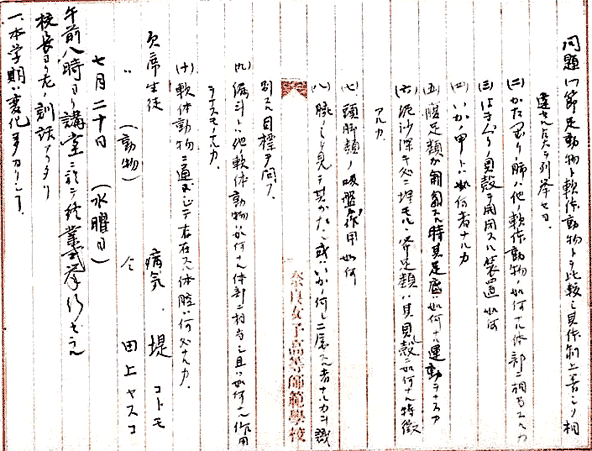 問題(一)節足動物ト軟体動物トヲ比較シ其体制上著シク相
違セル点ヲ列挙セヨ
(二)かたつむりノ肺ハ他ノ軟体動物ノ如何ナル体部ニ相当スルカ
(三)はまぐりノ貝殻ヲ開閉スル装置如何
(四)いかノ甲トハ如何ナル者ナルカ
(五)腹足類が匍匐スル時其足底ハ如何ナル運動ヲナスカ
(六)泥沙深キ処ニ埋モル斧足類ハ其貝殻ニ如何ナル特徴
アルカ
(七)頭脚類ノ吸盤ノ作用如何
(八)腕ヲ見テ其たこ或ハいかノ何レニ属スル者ナルカヲ識
別スル目標ヲ問フ
(九)漏斗ハ他軟体動物ノ如何ナル体部ニ相当シ且ツ如何ナル作用
ヲナスモノナルカ
(十)軟体動物ヲ通ジテ存在スル体腔ハ何処ナルカ
欠席生徒 病気 堤 コトモ
〃 (動物) 仝 田上ヤスコ
七月二十日 (水曜日)
午前八時ヨリ講堂ニ於テ終業式挙行セラル
校長ヨリ左ノ訓話アリタリ
一、本学期ハ変化多カリシコト
奈良女子高等師範學校